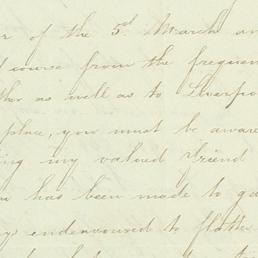 of the 5th March an
course from the frequen
as well as to Liverpo
place, you must be aware
my valued friend
has been made to ga
endeavoured to flatte